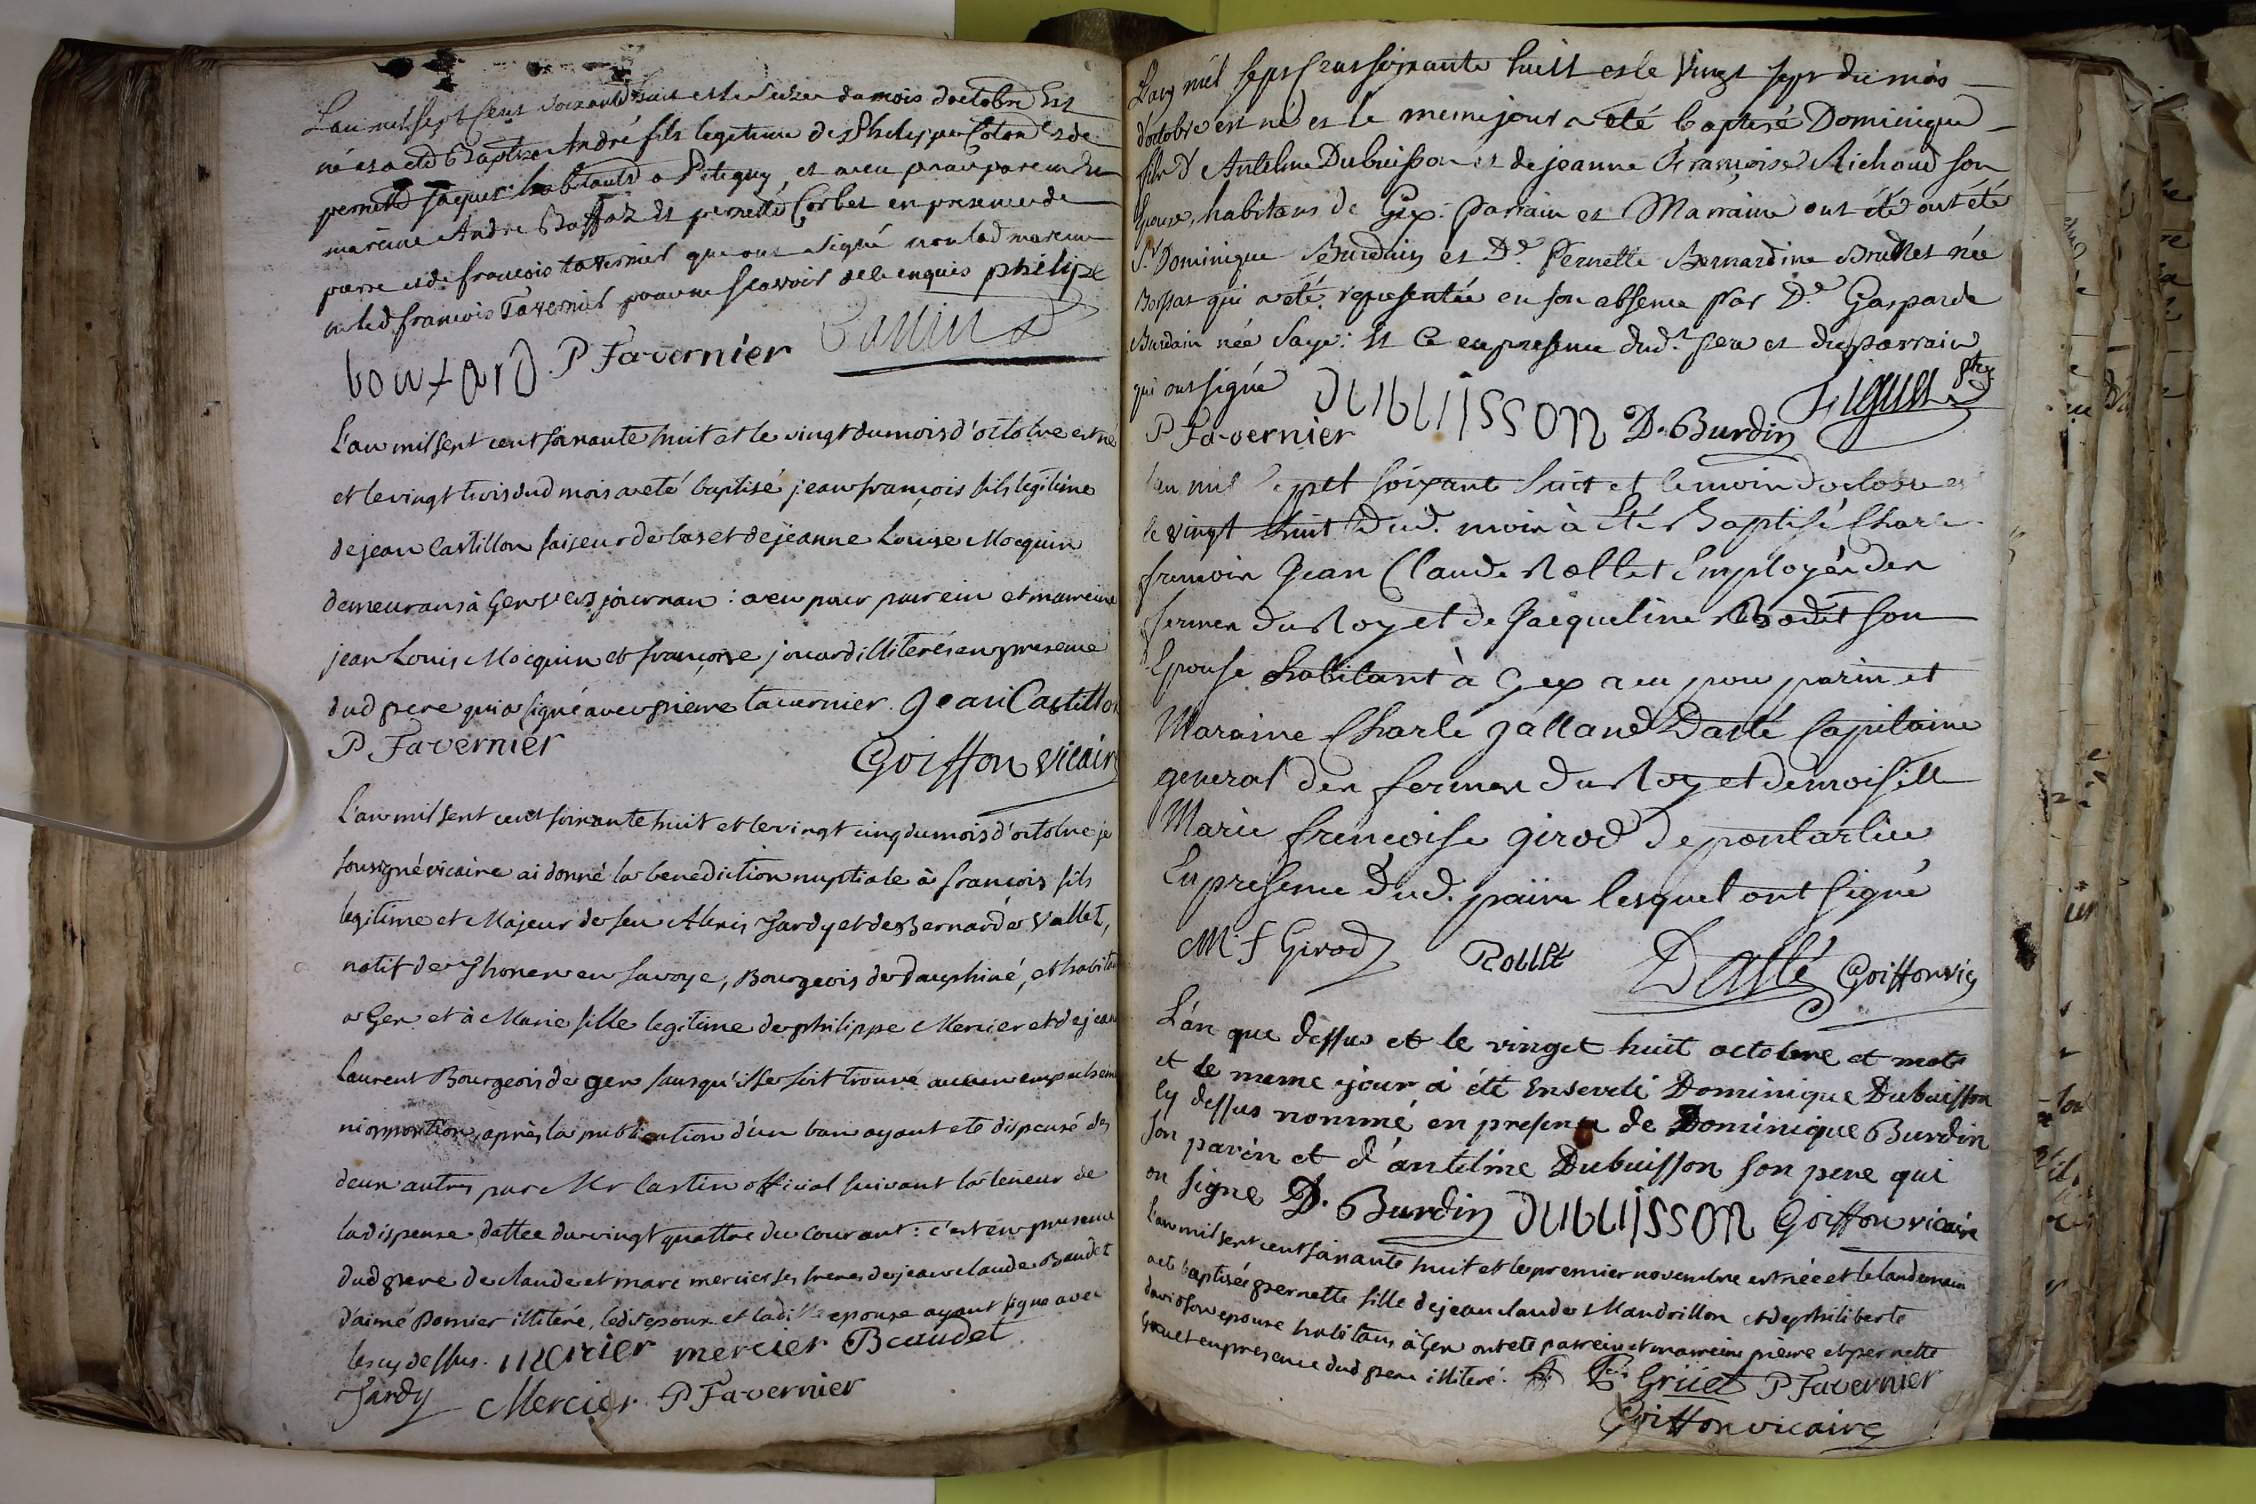 L'an mil sept cent soixante huit et le seize du mois d'octobre est
né et a eté Baptize André fils legitime de Philippe Coton et de
pernette Jaques habitants a Pitegny, et a eu pour parein et
mareine André Baffaz et pernette Corbet en presence de
pierre et de françois tavernier qui ont signé non lad mareine
ni led françois Tavernier pour ne scavoir de ce enquis philipe
boutard P Tavernier
L'an mil sept cent soixante huit et le vingt du mois d'octobre est né
et le vingt trois dud mois a eté baptisé jean françois fils légitime
de jean Castillon faiseur de bas et de jeanne Louise Mocquin
demeurans à Gex vers journan : a eu pour parein et mareine
jean Louis Mocquin et françoise jouard illiterés en presence
dud pere qui a signé avec pierre tavernier. Jean Castillon
P Tavernier Goiffon vicaire
L'an mil sept cent soixante huit et le vingt cinq du mois d'octobre je
sousigné vicaire ai donné la benediction nuptiale à françois fils
legitime et Majeur de feu Alexis Jardy et de Bernarde Vallet,
natif de Thonex en Savoye, Bourgeois de Dauphiné, et habitant
a Gex et à Marie fille legitime de philippe Mercier et de jeanne
Laurent Bourgeois de gex sans qu'il se soit trouvé aucun empechement
ni opposition, après la publication d'un ban ayant eté dispensé des
deux autres par Mr Castin official suivant la teneur de
la dispense dattée du vingt quattre du courant : c'est en presence
dud pere de claude et marc mercier ses freres de jean claude Baudet
d'aimé Domier illitéré, ledit epoux et ladite epouse ayant signé avec
les cy dessus. mercier mercier Beaudet
Jardy Mercier P Tavernier
L'an mil sept cent soixante huit et le vingt sept du mois
d'octobre est né et le meme jour a été baptisé Dominique
fils d'Antelme Dubuisson et de jeanne Françoise Richoud son
Epouse, habitans de Gex. Parrain et Marraine ont été ont été
Sr Dominique Burdin et De Pernette Bernardine Brunet née
Bossat qui a été representée en son absence par De Gasparde
Burdain née Saye : Et ce en presence dud. pere et du parrain
qui ont signé DUBUISSON D. Burdin
P Tavernier
L'an mil sept soixante huit et le moin d'octobre et
le vingt huit dud. moin à Eté Baptisé Charle
frencoin Jean Claude Rollet Employé den
fermen du Roy et de Jacqueline Bodet son
Epouse habitant à Gex a eu pour parin et
Maraine Charle Jalland Dasté Capitaine
general den fermen du Roy et demoiselle
Marie frencoise girod de pontarlier
En presence dud. paire lesquel ont signé
M. f Girod Rollet Dasté Goiffon vic
L'an que dessus et le vinget huit octobre et mort
et le meme jour a été enseveli Dominique Dubuisson
cy dessus nommé en presence de Dominique Burdin
son parin et d'antelme Dubuisson son pere qui
on signe D. Burdin DUBUISSON Goiffon vicaire
L'an mil sept cent soixante huit et le premier novembre est née et le landemain
a eté baptisée pernette fille de jean claude Mandrillon et de philiberte
david son epouse habitans à Gex ont eté parrein et marreine pierre et pernette
Gruet en presence dud pere illiteré. Gruet P Tavernier
Goiffon vicaire